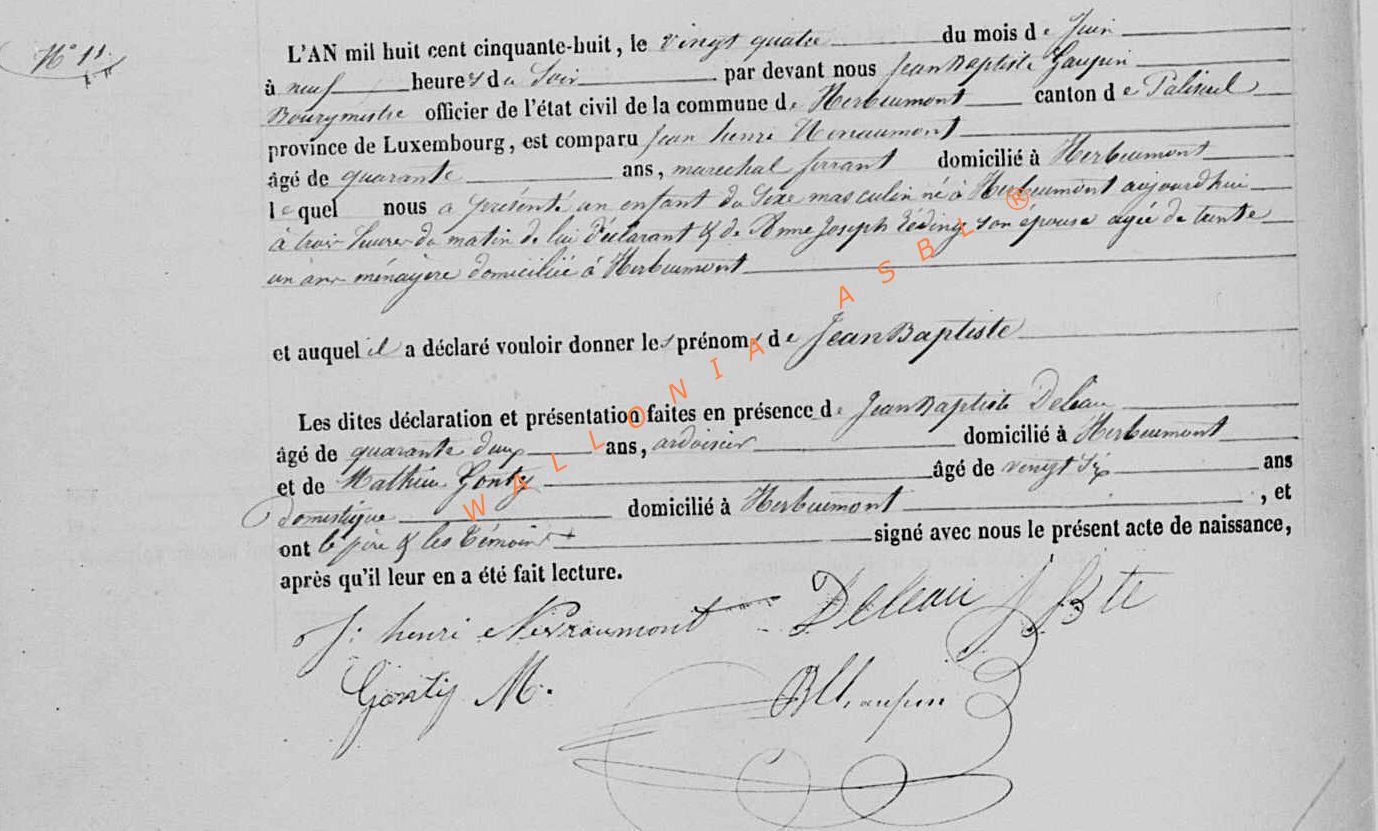 N° 11.
L'AN mil huit cent cinquante-huit, le vingt quatre du mois de Juin
à neuf heures du Soir par devant nous Jean Baptiste
Bourgmestre officier de l'état civil de la commune de Herbeumont canton de Paliseul
province de Luxembourg, est comparu Jean henri
âgé de quarante ans, marechal ferrant domicilié à Herbeumont
lequel nous a présenté un enfant du Sexe masculin né à Herbeumont aujourd'hui
à trois heures du matin de lui déclarant & de Anne Joseph son épouse agée de trente
un ans ménagère domiciliée à Herbeumont
et auquel il a déclaré vouloir donner les prénoms de Jean Baptiste
Les dites déclaration et présentation faites en présence de Jean Baptiste Deleau
âgé de quarante deux ans, ardoisier domicilié à Herbeumont
et de Mathieu Gonty âgé de vingt Six ans
domestique domicilié à Herbeumont, et
ont le père & les témoins signé avec nous le présent acte de naissance,
après qu'il leur en a été fait lecture.
J: henri Deleau J Bte
Gonty M.
WALLONIA ASBL ®